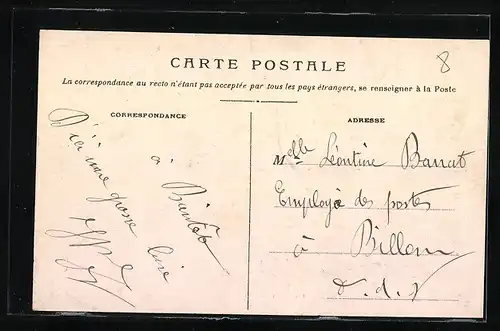 8
CARTE POSTALE
La correspondance au recto n'étant pas acceptée par tous les pays étrangers, se renseigner à la Poste
CORRESPONDANCE
à Bientôt
D'ici une grosse
ADRESSE
Melle Léontine Barrat
Employée des postes
à Billom
P. d. D